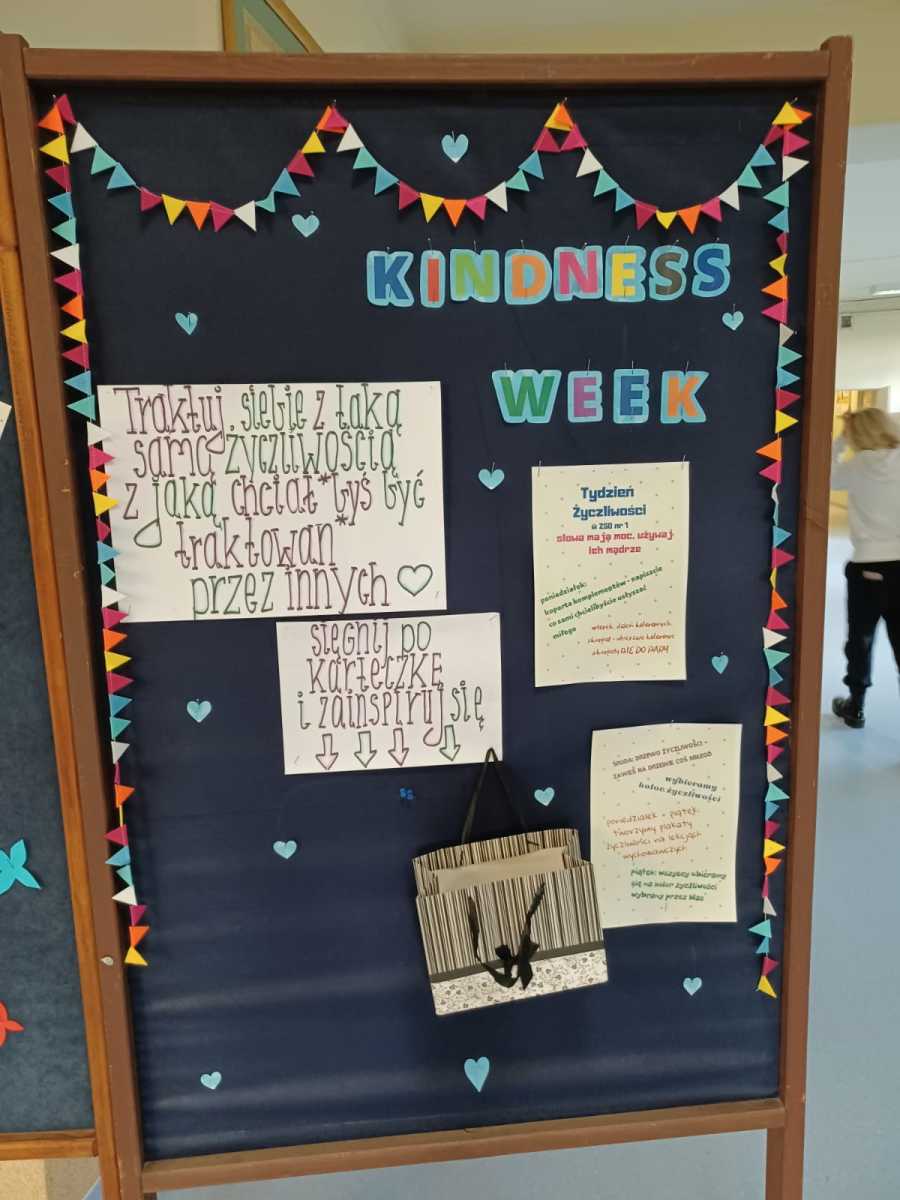 KINDNESS
WEEK
Traktuj siebie z taką
samą życzliwością
z jaką chciał*byś być
traktowan*
przez innych
sięgnij po
karteczkę
i zainspiruj się
Tydzień
Życzliwości
w ZSO nr 1
słowa mają moc, używaj
ich mądrze
poniedziałek:
koperta komplementów - napiszcie
co sami chcielibyście usłyszeć
miłego
wtorek: dzień kolorowych
skarpet - ubieramy kolorowe
skarpety NIE DO PARY
ŚRODA: DRZEWO ŻYCZLIWOŚCI -
ZAWIEŚ NA DRZEWIE COŚ MIŁEGO
wybieramy
kolor życzliwości
poniedziałek - piątek:
tworzymy plakaty
życzliwości na lekcjach
wychowawczych
piątek: wszyscy ubieramy
się na kolor życzliwości
wybrany przez Was